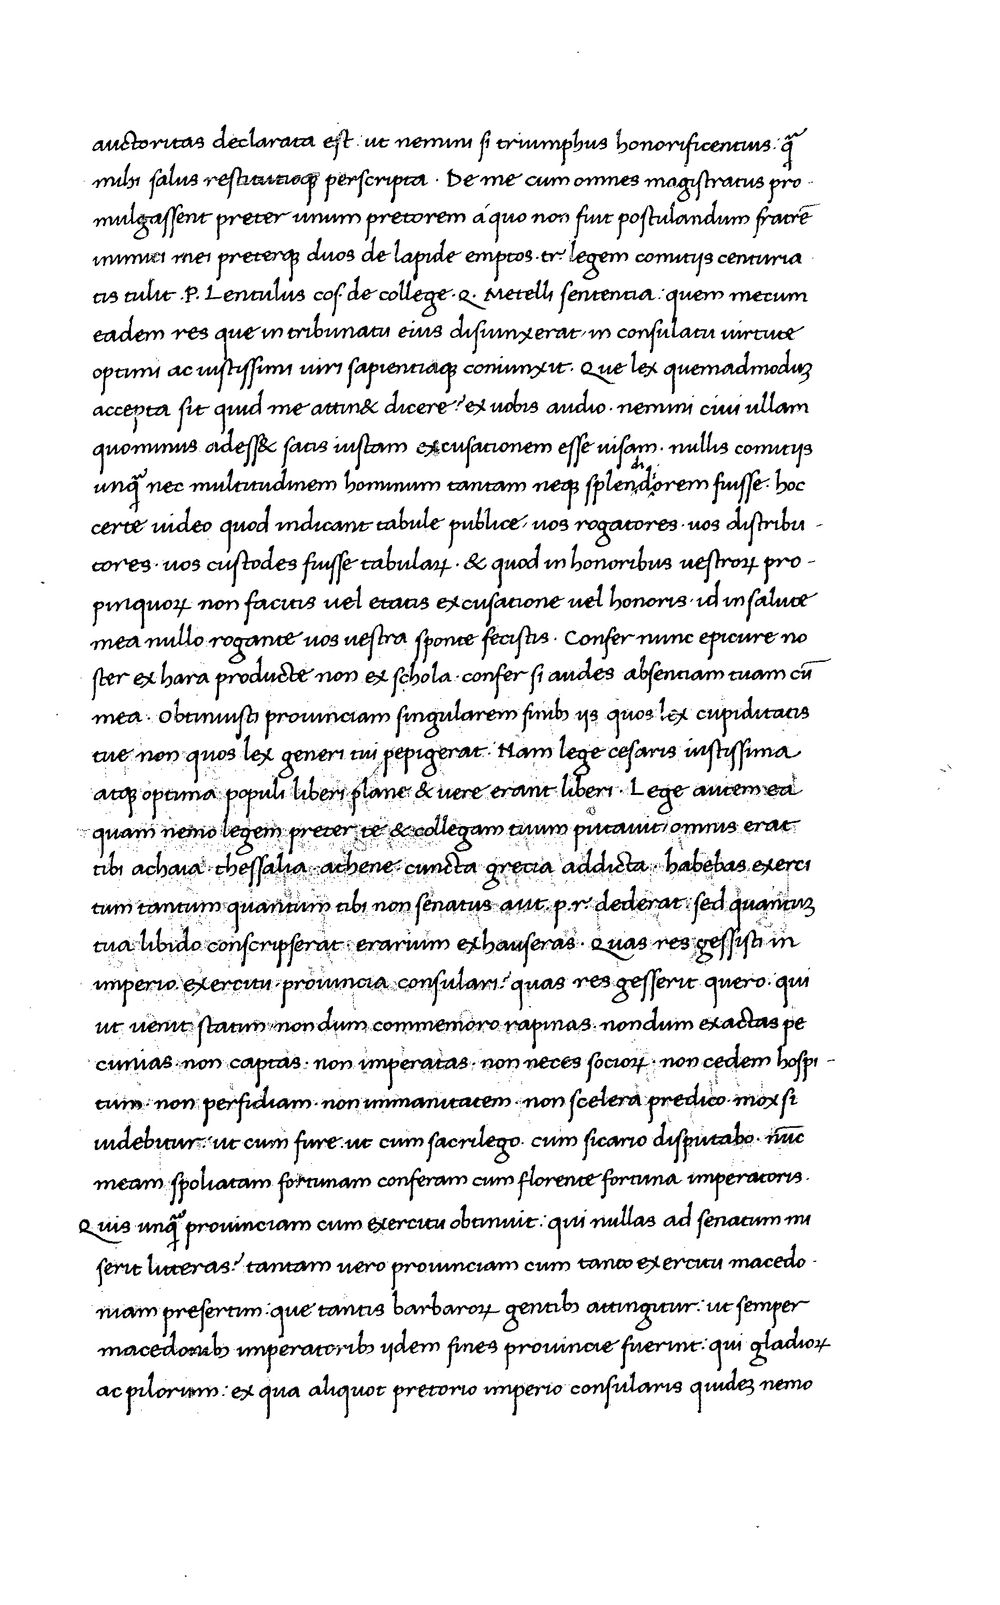 auctoritas declarata est. ut nemini si triumphus honorificentius: qᷓ
mihi salus restitutioqꝫ perscripta. De me cum omnes magistratus pro-
mulgassent preter unum pretorem á quo non fuit postulandum fratrē
inimici mei preterqꝫ duos de lapide emptos. tr. legem comitijs centuria
tis tulit .P. Lentulus cos. de college .Q. Metelli sententia: quem mecum
eadem res que in tribunatu eius disiunxerat, in consulatu uirtute
optimi ac iustissimi uiri sapientiaqꝫ coniunxit. Que lex quemadmoduꝫ
accepta sit quid me attin& dicere? ex uobis audio. nemini ciui ullam
quominus adess& satis iustam excusationem esse uisam. nullis comitijs
unqᷓ nec multitudinem hominum tantam neqꝫ splendidiorem fuisse. hoc
certe uideo quod indicant tabule publice, uos rogatores. uos distribu-
tores. uos custodes fuisse tabulaꝝ. & quod in honoribus uestroꝝ pro-
pinquoꝝ non facitis uel etatis excusatione uel honoris. id in salute
mea nullo rogante uos uestra sponte fecistis. Confer nunc epicure no
ster ex hara producte non ex schola. confer si audes absentiam tuam cū
mea. Obtinuisti prouinciam singularem finibꝫ ijs quos lex cupiditatis
tue non quos lex generi tui pepigerat. Nam lege cesaris iustissima
atqꝫ optima populi liberi plane & uere erant liberi. Lege autem ea
quam nemo legem preter te & collegam tuum putauit, omnis erat
tibi achaia. thessalia. athene. cuncta grecia addicta. habebas exerci
tum tantum quantum tibi non senatus aut .p.r. dederat. sed quantuꝫ
tua libido conscripserat. erarium exhauseras. Quas res gessisti in
imperio. exercitu. prouincia consulari? quas res gesserit quero. qui
ut uenit statim. nondum commemoro rapinas. nondum exactas pe
cunias. non captas. non imperatas. non neces socioꝝ. non cedem hospi-
tum. non perfidiam. non immanitatem. non scelera predico. mox si
uidebitur: ut cum fure. ut cum sacrilego. cum sicario disputabo. nūc
meam spoliatam fortunam conferam cum florente fortuna imperatoris.
Quis unqᷓ prouinciam cum exercitu obtinuit: qui nullas ad senatum mi
serit litteras? tantam uero prouinciam cum tanto exercitu macedo-
niam presertim: que tantis barbaroꝝ gentibꝫ attingitur: ut semper
macedonibꝫ imperatoribꝫ ijdem fines prouincie fuerint: qui gladioꝝ
ac pilorum: ex qua aliquot pretorio imperio consularis quideꝫ nemo